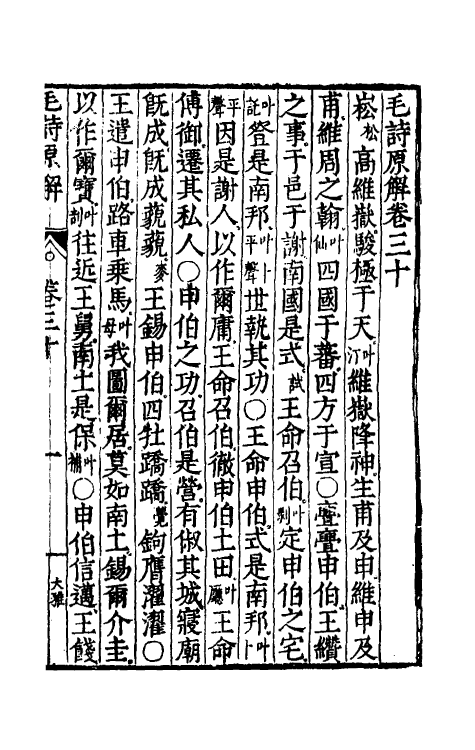 毛詩原解卷三十
崧松高維嶽駿極于天叶汀維嶽降神生甫及申維申及
甫維周之翰叶仙四國于蕃四方于宣〇亹亹申伯王纘
之事于邑于謝南國是式試王命召伯叶剝定申伯之宅
叶託登是南邦叶卜平聲世執其功〇王命申伯式是南邦叶卜
平聲因是謝人以作爾庸王命召伯徹申伯土田叶廳王命
傅御遷其私人〇申伯之功召伯是營有俶其城寢廟
旣成旣成藐藐麥王錫申伯四牡蹻蹻覺鉤膺濯濯〇
王遣申伯路車乘馬叶母我圖爾居莫如南土錫爾介圭
以作爾寶叶剖往近王舅南土是保叶補〇申伯信邁王餞
毛詩原解
卷三十
一
大雅